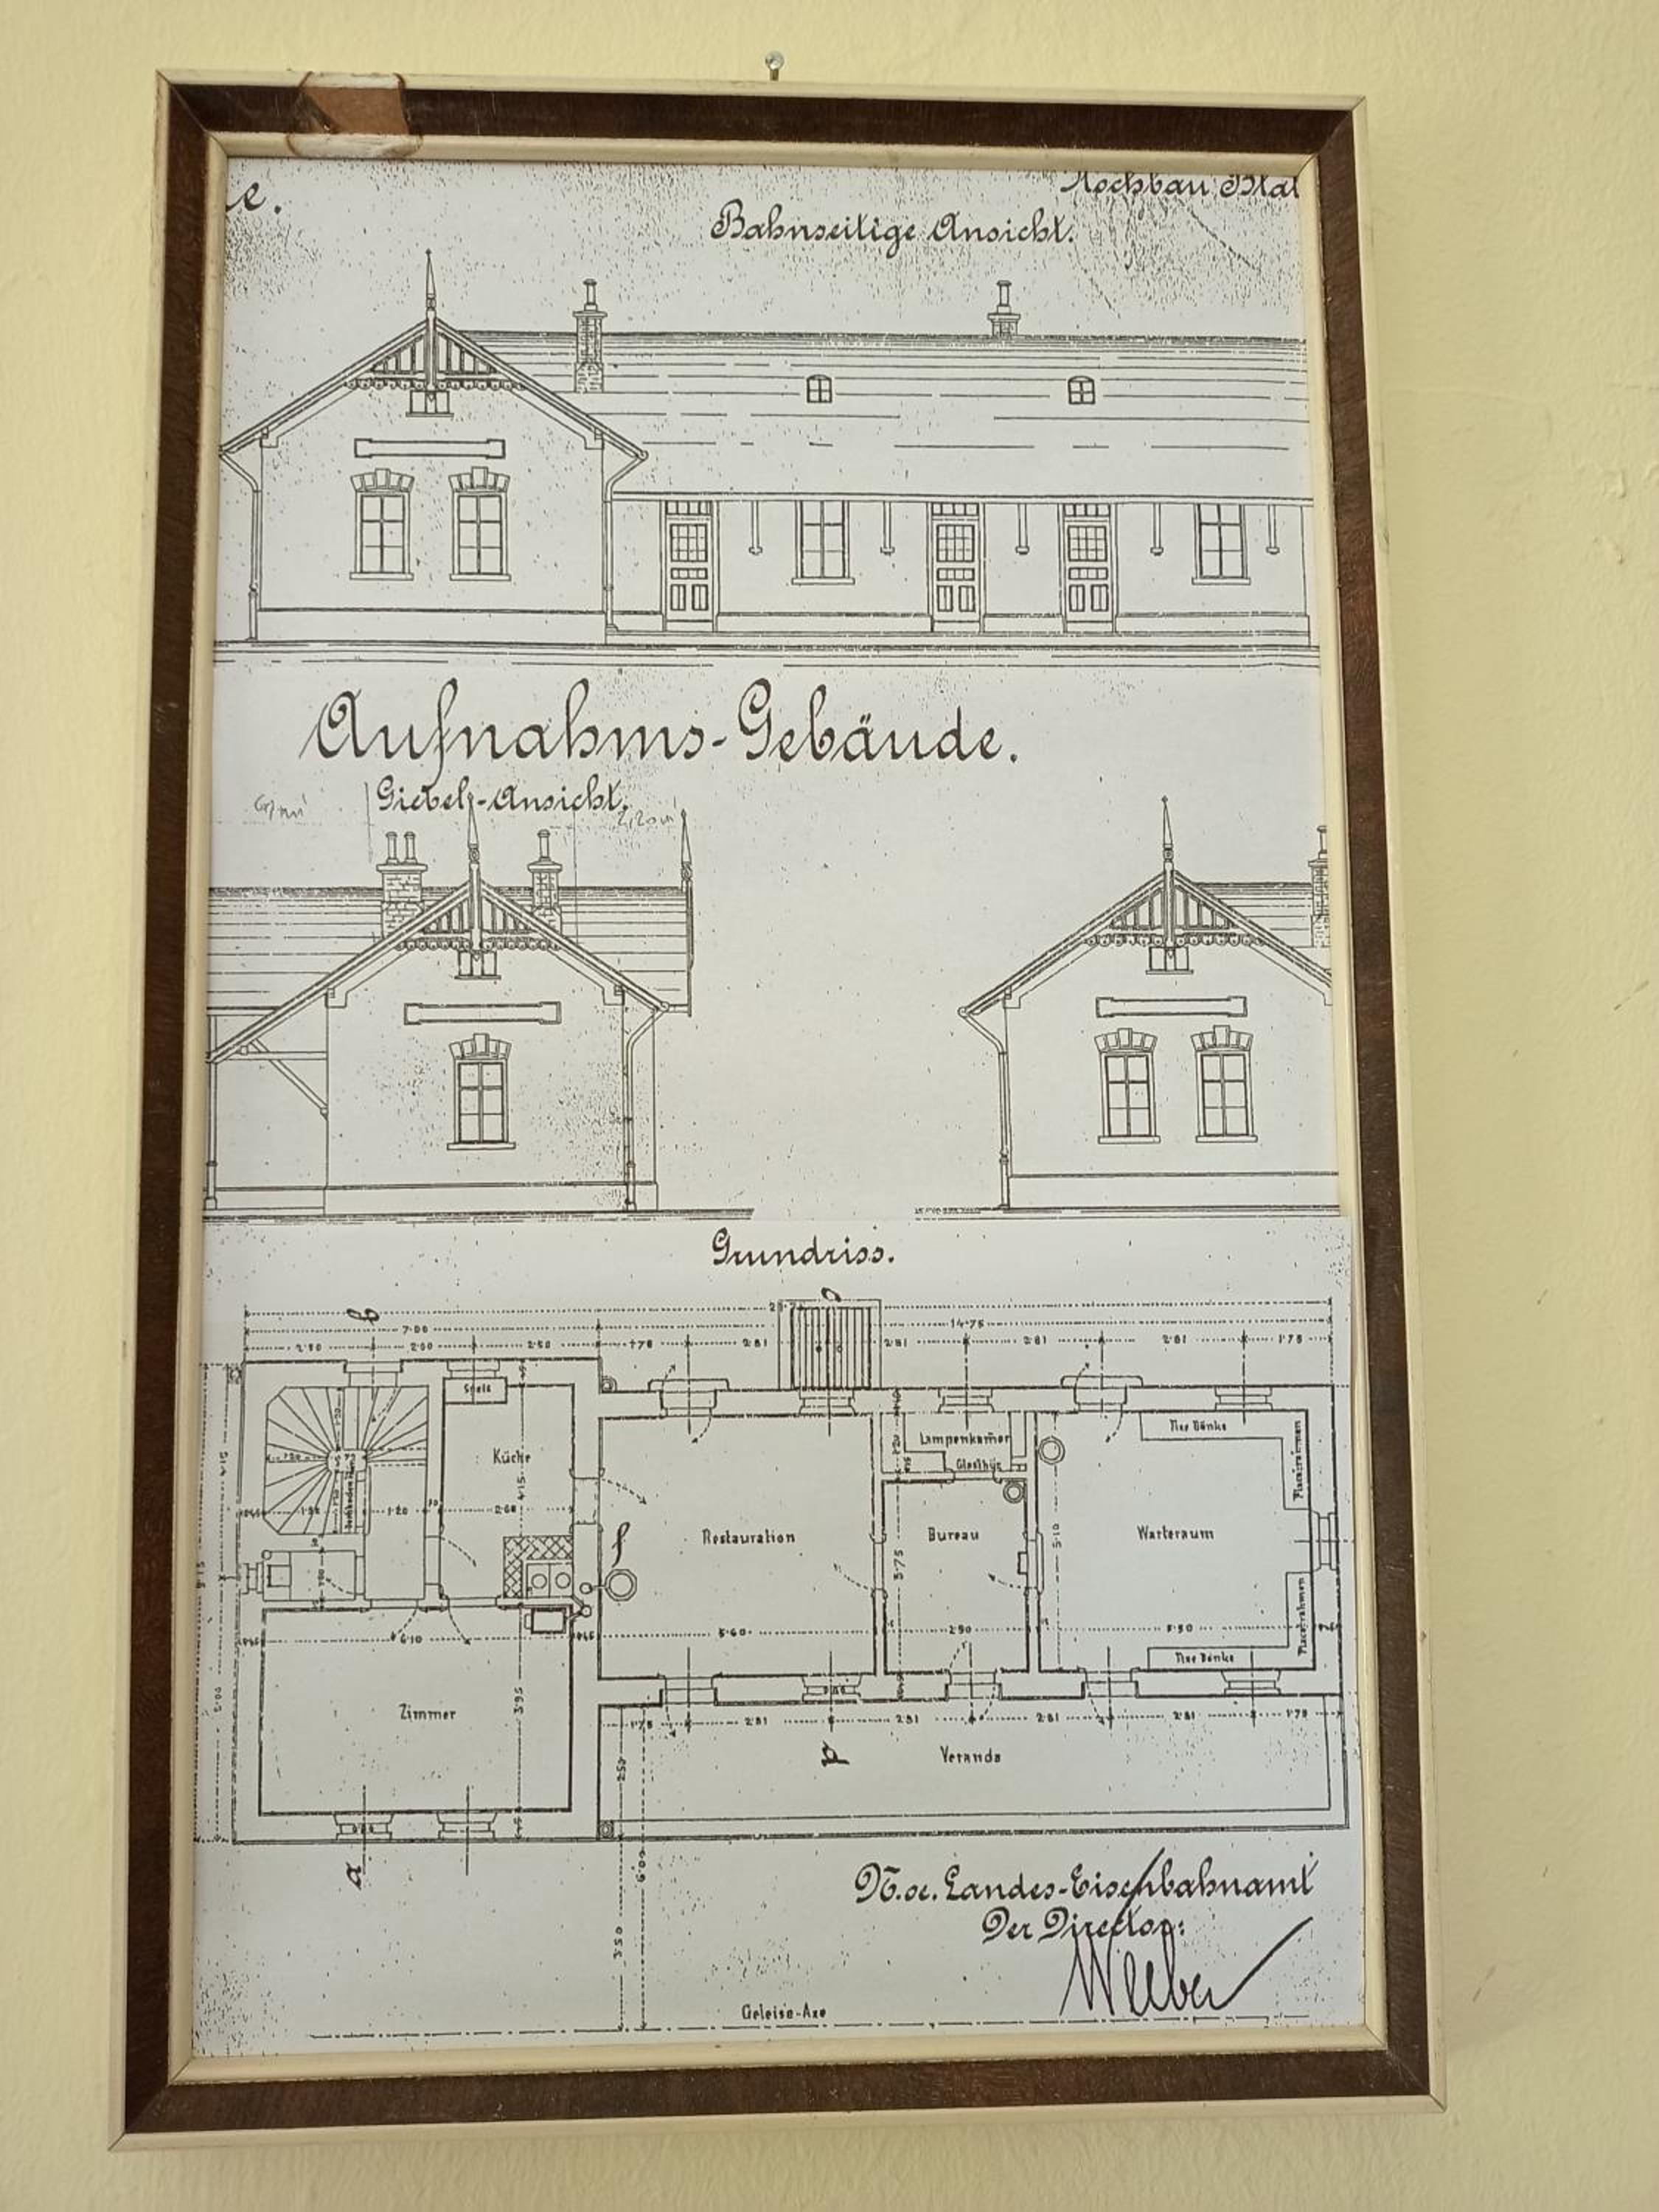 e.
Hochbau Blat
Bahnseitige Ansicht.
Aufnahms-Gebäude.
Giebel-Ansicht.
2,20m
Grundriss.
b
7·00
14·75
2·50
1·78
2·81
2·81
2·81
2·81
1·75
Speis
Küche
4·15
2·68
1·20
Lampenkamer
Glasthür
Nac Bänke
Placatrahmen
f
Restauration
Bureau
Warteraum
3·75
5·10
6·10
5·60
2·90
5·50
Placatrahmen
Nac Bänke
Zimmer
3·95
1·75
2·81
2·81
2·81
2·81
1·75
Veranda
2·50
a
6·00
3·50
N.oe. Landes-Eisenbahnamt
Der Director:
Weeber
Geleise-Axe